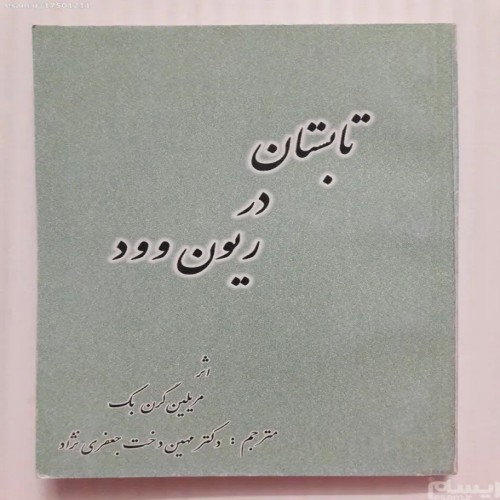 تابستان
در
ریون وود
اثر
مریلین گرن بک
مترجم : دکتر مهین دخت جعفری نژاد